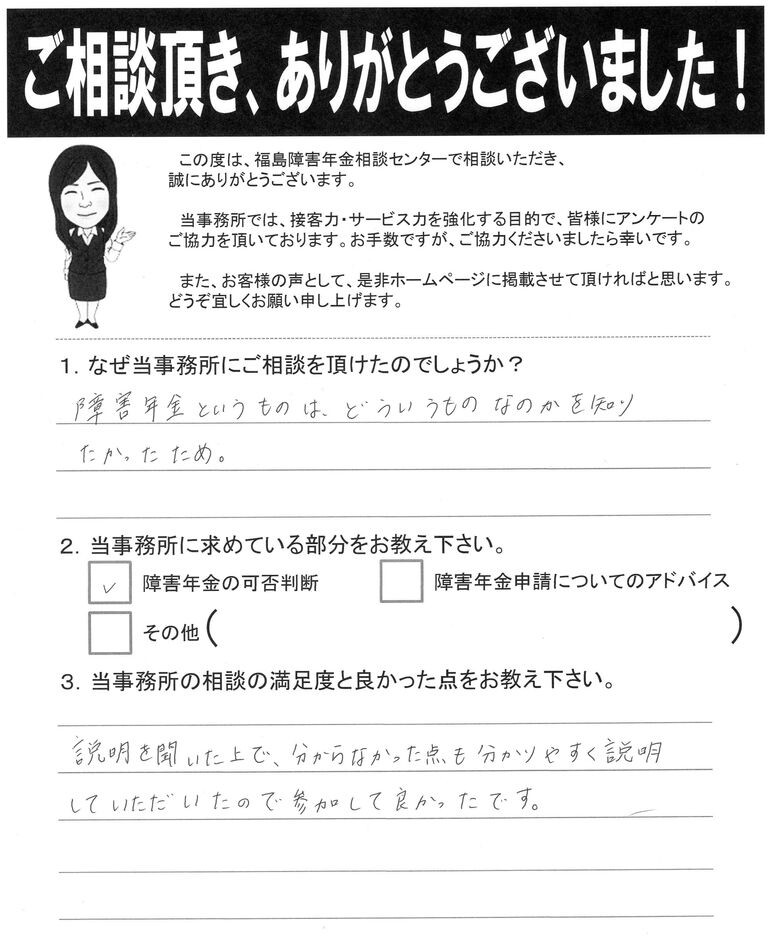 ご相談頂き、ありがとうございました！
この度は、福島障害年金相談センターで相談いただき、
誠にありがとうございます。
当事務所では、接客力・サービス力を強化する目的で、皆様にアンケートの
ご協力を頂いております。お手数ですが、ご協力くださいましたら幸いです。
また、お客様の声として、是非ホームページに掲載させて頂ければと思います。
どうぞ宜しくお願い申し上げます。
1. なぜ当事務所にご相談を頂けたのでしょうか？
障害年金というものは、どういうものなのかを知り
たかったため。
2. 当事務所に求めている部分をお教え下さい。
✓ 障害年金の可否判断 障害年金申請についてのアドバイス
その他（ ）
3. 当事務所の相談の満足度と良かった点をお教え下さい。
説明を聞いた上で、分からなかった点も分かりやすく説明
していただいたので参加して良かったです。